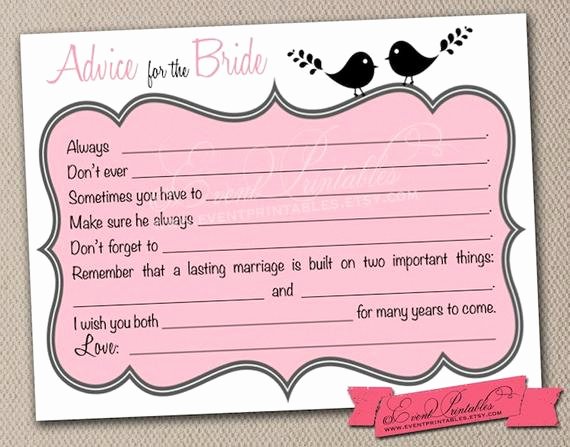 Advice for the Bride
Always ______.
Don't ever ______.
Sometimes you have to ______.
Make sure he always ______.
Don't forget to ______.
Remember that a lasting marriage is built on two important things:
______ and ______.
I wish you both ______ for many years to come.
Love: ______
Event Printables
WWW.EVENTPRINTABLES.ETSY.COM
Event Printables
WWW.EVENTPRINTABLES.ETSY.COM